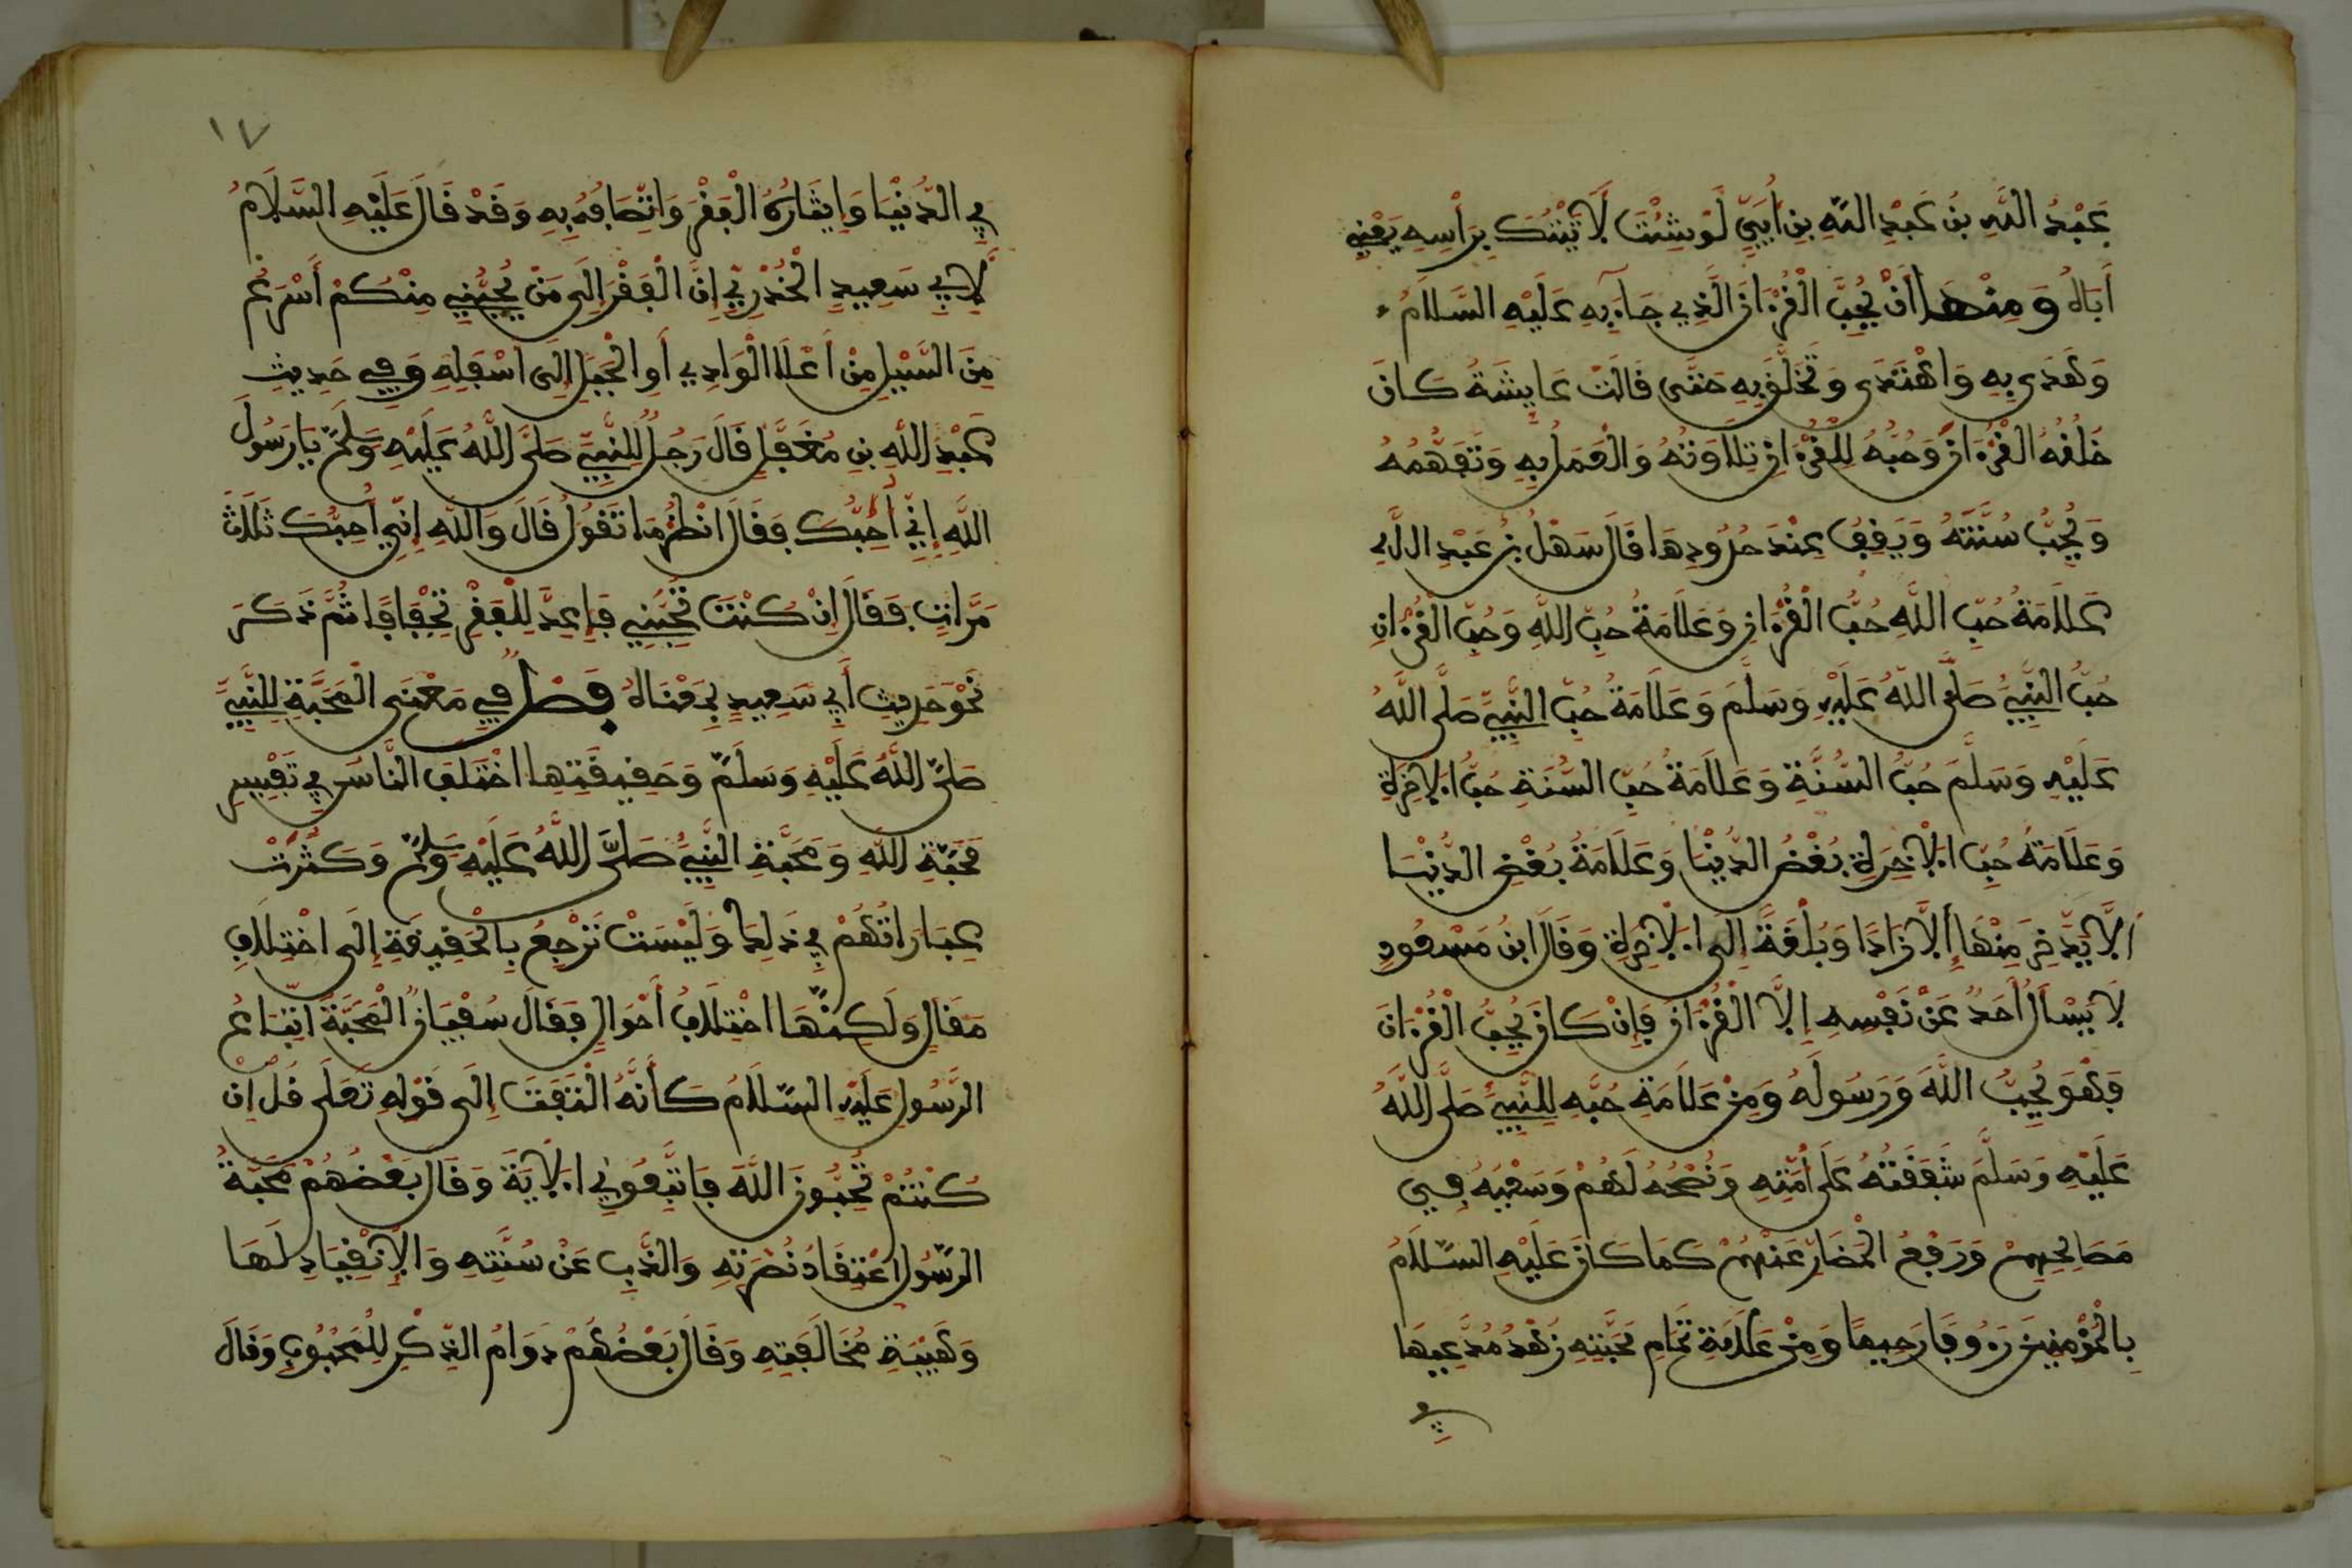 عَبْدُ اللَّهِ بْنُ عَبْدِ اللَّهِ بْنِ أُبَيٍّ لَوْ شِئْتَ لَأَتَيْتُكَ بِرَأْسِهِ يَعْنِي
أَبَاهُ وَمِنْهَا أَنْ يُحِبَّ الْقُرْءَانَ الَّذِي جَاءَ بِهِ عَلَيْهِ السَّلَامُ
وَهَدَى بِهِ وَاهْتَدَى وَتَخَلَّقَ بِهِ حَتَّى قَالَتْ عَايِشَةُ كَانَ
خُلُقُهُ الْقُرْءَانَ وَحُبُّهُ لِلْقُرْءَانِ تِلَاوَتُهُ وَالْعَمَلُ بِهِ وَتَفَهُّمُهُ
وَيُحِبُّ سُنَّتَهُ وَيَقِفُ عِنْدَ حُدُودِهَا قَالَ سَهْلُ بْنُ عَبْدِ اللَّهِ
عَلَامَةُ حُبِّ اللَّهِ حُبُّ الْقُرْءَانِ وَعَلَامَةُ حُبِّ اللَّهِ وَحُبِّ الْقُرْءَانِ
حُبُّ النَّبِيِّ صَلَّى اللَّهُ عَلَيْهِ وَسَلَّمَ وَعَلَامَةُ حُبِّ النَّبِيِّ صَلَّى اللَّهُ
عَلَيْهِ وَسَلَّمَ حُبُّ السُّنَّةِ وَعَلَامَةُ حُبِّ السُّنَّةِ حُبُّ الْآخِرَةِ
وَعَلَامَةُ حُبِّ الْآخِرَةِ بُغْضُ الدُّنْيَا وَعَلَامَةُ بُغْضِ الدُّنْيَا
أَلَّا يَدَّخِرَ مِنْهَا إِلَّا زَادًا وَبُلْغَةً إِلَى الْآخِرَةِ وَقَالَ ابْنُ مَسْعُودٍ
لَا يَسْأَلُ أَحَدٌ عَنْ نَفْسِهِ إِلَّا الْقُرْءَانَ فَإِنْ كَانَ يُحِبُّ الْقُرْءَانَ
فَهُوَ يُحِبُّ اللَّهَ وَرَسُولَهُ وَمِنْ عَلَامَةِ حُبِّهِ لِلنَّبِيِّ صَلَّى اللَّهُ
عَلَيْهِ وَسَلَّمَ شَفَقَتُهُ عَلَى أُمَّتِهِ وَنُصْحُهُ لَهُمْ وَسَعْيُهُ فِي
مَصَالِحِهِمْ وَرَفْعُ الْمَضَارِّ عَنْهُمْ كَمَا كَانَ عَلَيْهِ السَّلَامُ
بِالْمُؤْمِنِينَ رَءُوفًا رَحِيمًا وَمِنْ عَلَامَةِ تَمَامِ مَحَبَّتِهِ زُهْدُ مُدَّعِيهَا
فِي
١٧
فِي الدُّنْيَا وَإِيثَارُهُ الْفَقْرَ وَاتِّصَافُهُ بِهِ وَقَدْ قَالَ عَلَيْهِ السَّلَامُ
لِأَبِي سَعِيدٍ الْخُدْرِيِّ إِنَّ الْفَقْرَ إِلَى مَنْ يُحِبُّنِي مِنْكُمْ أَسْرَعُ
مِنَ السَّيْلِ مِنْ أَعْلَا الْوَادِي أَوِ الْجَبَلِ إِلَى أَسْفَلِهِ وَفِي حَدِيثِ
عَبْدِ اللَّهِ بْنِ مُغَفَّلٍ قَالَ رَجُلٌ لِلنَّبِيِّ صَلَّى اللَّهُ عَلَيْهِ وَسَلَّمَ يَا رَسُولَ
اللَّهِ إِنِّي أُحِبُّكَ فَقَالَ انْظُرْ مَا تَقُولُ قَالَ وَاللَّهِ إِنِّي أُحِبُّكَ ثَلَاثَ
مَرَّاتٍ فَقَالَ إِنْ كُنْتَ تُحِبُّنِي فَأَعِدَّ لِلْفَقْرِ تِجْفَافًا ثُمَّ ذَكَرَ
نَحْوَ حَدِيثِ أَبِي سَعِيدٍ بِمَعْنَاهُ فَصْلٌ فِي مَعْنَى الْمَحَبَّةِ لِلنَّبِيِّ
صَلَّى اللَّهُ عَلَيْهِ وَسَلَّمَ وَحَقِيقَتِهَا اخْتَلَفَ النَّاسُ فِي تَفْسِيرِ
مَحَبَّةِ اللَّهِ وَمَحَبَّةِ النَّبِيِّ صَلَّى اللَّهُ عَلَيْهِ وَسَلَّمَ وَكَثُرَتْ
عِبَارَاتُهُمْ فِي ذَلِكَ وَلَيْسَتْ تَرْجِعُ بِالْحَقِيقَةِ إِلَى اخْتِلَافِ
مَقَالٍ وَلَكِنَّهَا اخْتِلَافُ أَحْوَالٍ فَقَالَ سُفْيَانُ الْمَحَبَّةُ اتِّبَاعُ
الرَّسُولِ عَلَيْهِ السَّلَامُ كَأَنَّهُ الْتَفَتَ إِلَى قَوْلِهِ تَعَلَى قُلْ إِنْ
كُنْتُمْ تُحِبُّونَ اللَّهَ فَاتَّبِعُونِي الْآيَةَ وَقَالَ بَعْضُهُمْ مَحَبَّةُ
الرَّسُولِ اعْتِقَادُ نُصْرَتِهِ وَالذَّبِّ عَنْ سُنَّتِهِ وَالْإِنْقِيَادِ لَهَا
وَهَيْبَةِ مُخَالَفَتِهِ وَقَالَ بَعْضُهُمْ دَوَامُ الذِّكْرِ لِلْمَحْبُوبِ وَقَالَ